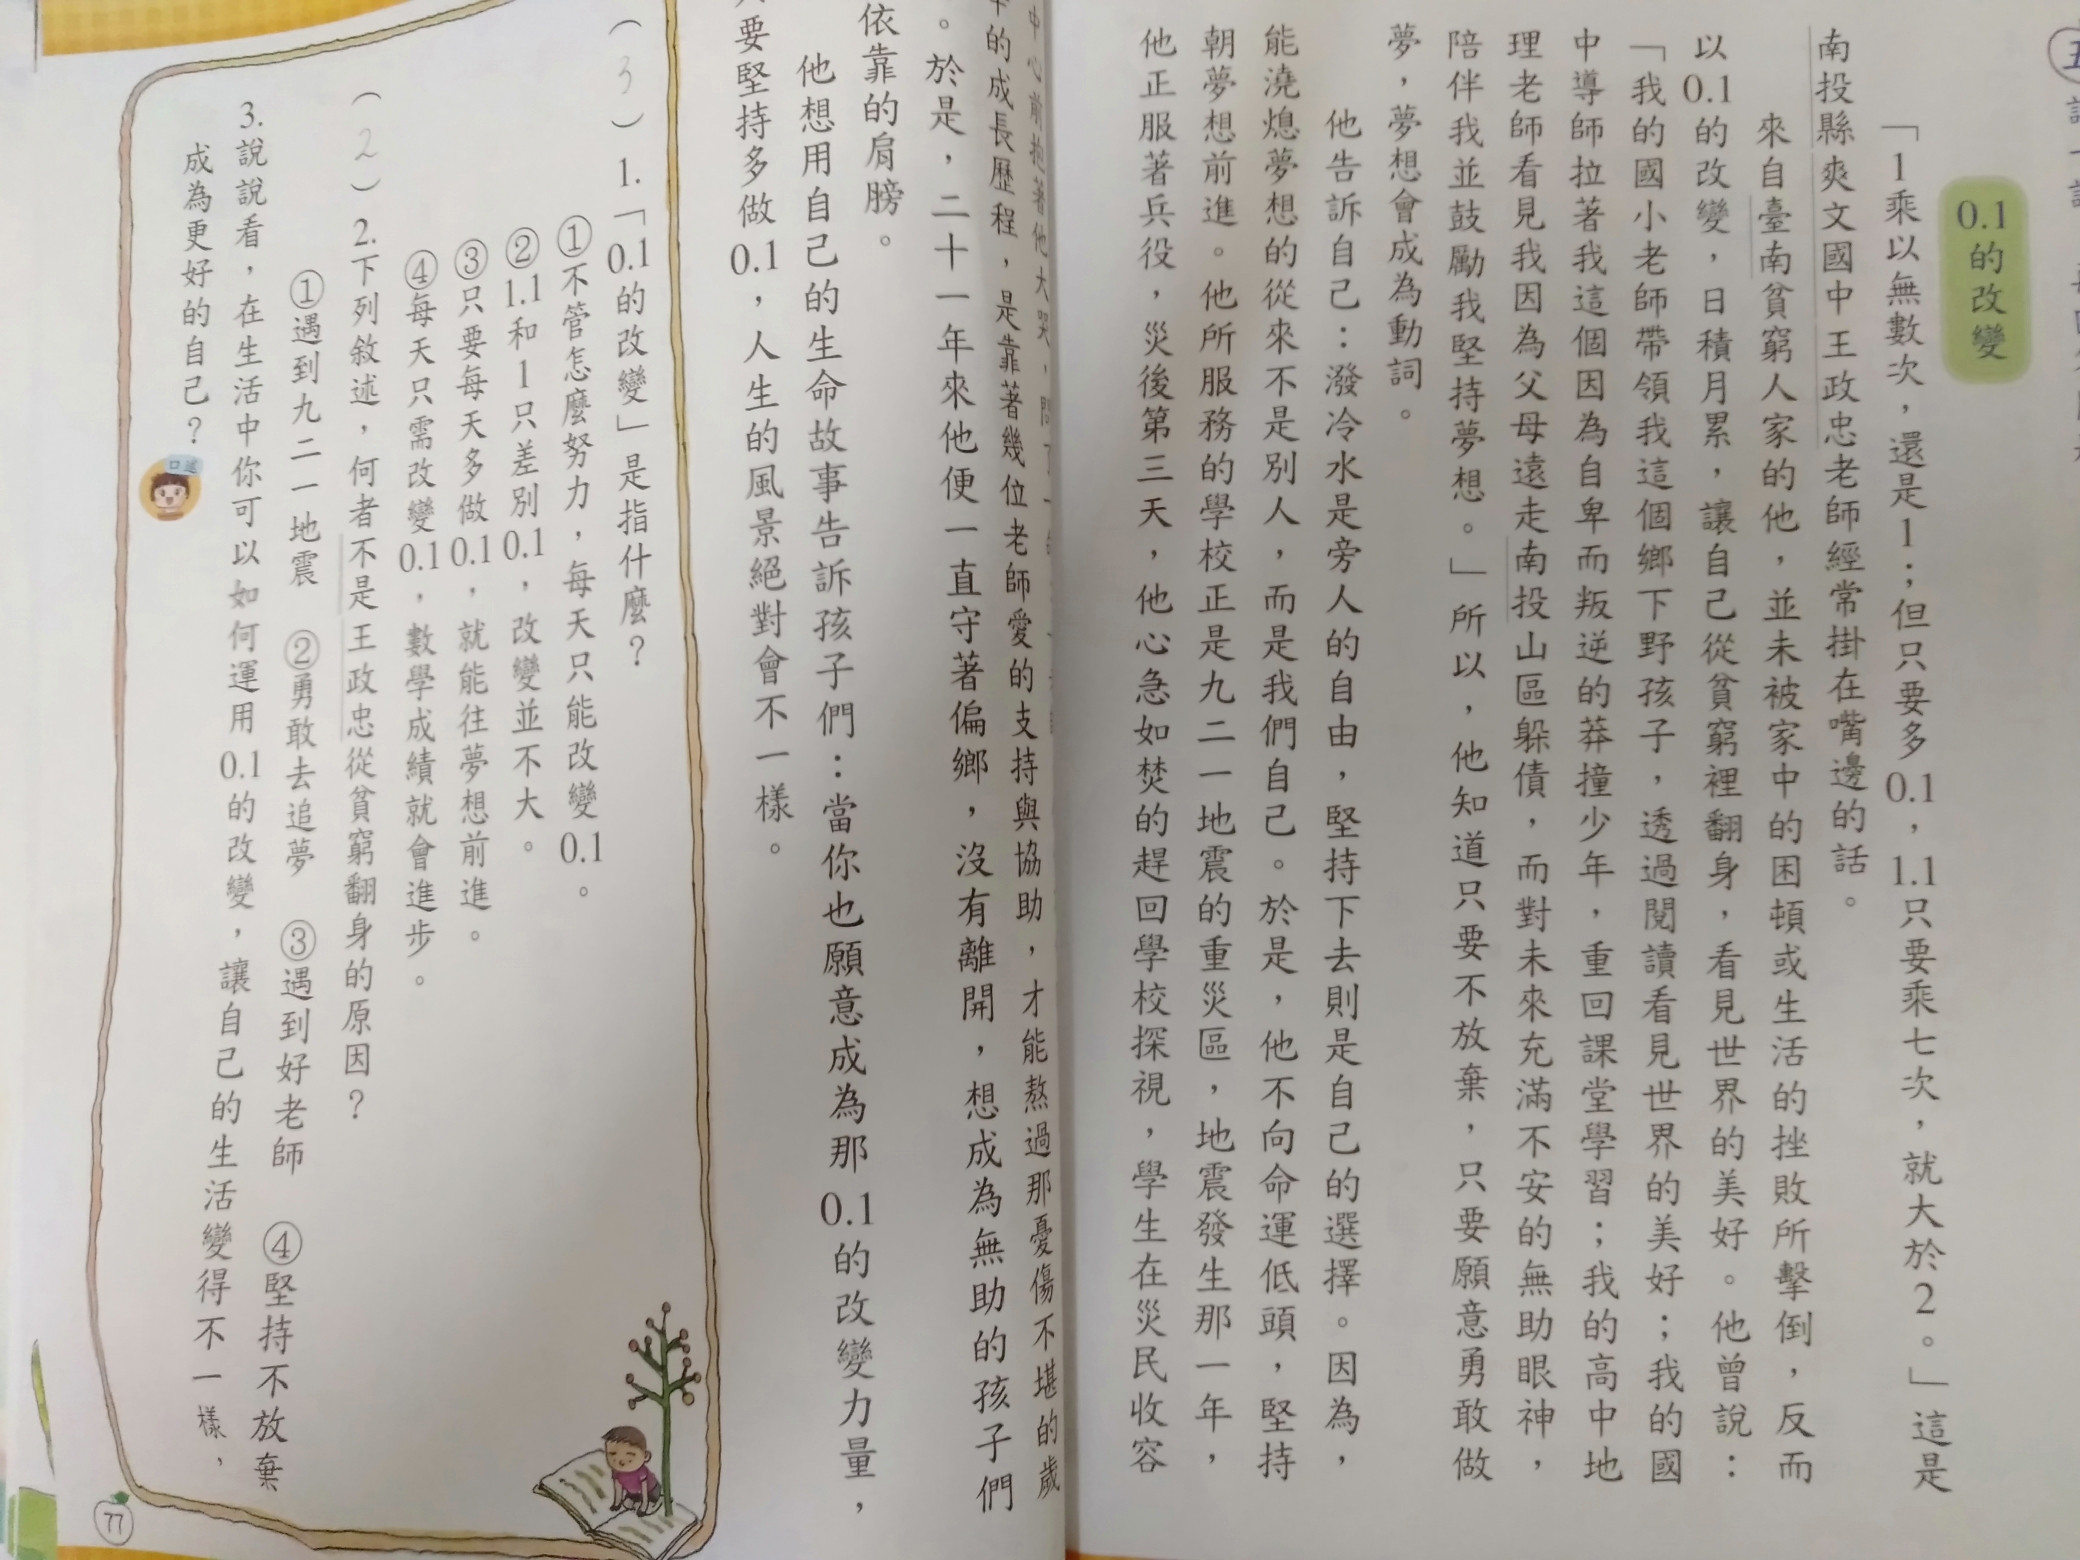 0.1的改變
「1乘以無數次，還是1；但只要多0.1，1.1只要乘七次，就大於2。」這是
南投縣爽文國中王政忠老師經常掛在嘴邊的話。
來自臺南貧窮人家的他，並未被家中的困頓或生活的挫敗所擊倒，反而
以0.1的改變，日積月累，讓自己從貧窮裡翻身，看見世界的美好。他曾說：
「我的國小老師帶領我這個鄉下野孩子，透過閱讀看見世界的美好；我的國
中導師拉著我這個因為自卑而叛逆的莽撞少年，重回課堂學習；我的高中地
理老師看見我因為父母遠走南投山區躲債，而對未來充滿不安的無助眼神，
陪伴我並鼓勵我堅持夢想。」所以，他知道只要不放棄，只要願意勇敢做
夢，夢想會成為動詞。
他告訴自己：潑冷水是旁人的自由，堅持下去則是自己的選擇。因為，
能澆熄夢想的從來不是別人，而是我們自己。於是，他不向命運低頭，堅持
朝夢想前進。他所服務的學校正是九二一地震的重災區，地震發生那一年，
他正服著兵役，災後第三天，他心急如焚的趕回學校探視，學生在災民收容
中心前抱著他大哭，問了
的成長歷程，是靠著幾位老師愛的支持與協助，才能熬過那憂傷不堪的歲
。於是，二十一年來他便一直守著偏鄉，沒有離開，想成為無助的孩子們
依靠的肩膀。
他想用自己的生命故事告訴孩子們：當你也願意成為那0.1的改變力量，
要堅持多做0.1，人生的風景絕對會不一樣。
（3）1.「0.1的改變」是指什麼？
①不管怎麼努力，每天只能改變0.1。
②1.1和1只差別0.1，改變並不大。
③只要每天多做0.1，就能往夢想前進。
④每天只需改變0.1，數學成績就會進步。
（2）2.下列敘述，何者不是王政忠從貧窮翻身的原因？
①遇到九二一地震　②勇敢去追夢　③遇到好老師　④堅持不放棄
3.說說看，在生活中你可以如何運用0.1的改變，讓自己的生活變得不一樣，
成為更好的自己？
口述
77